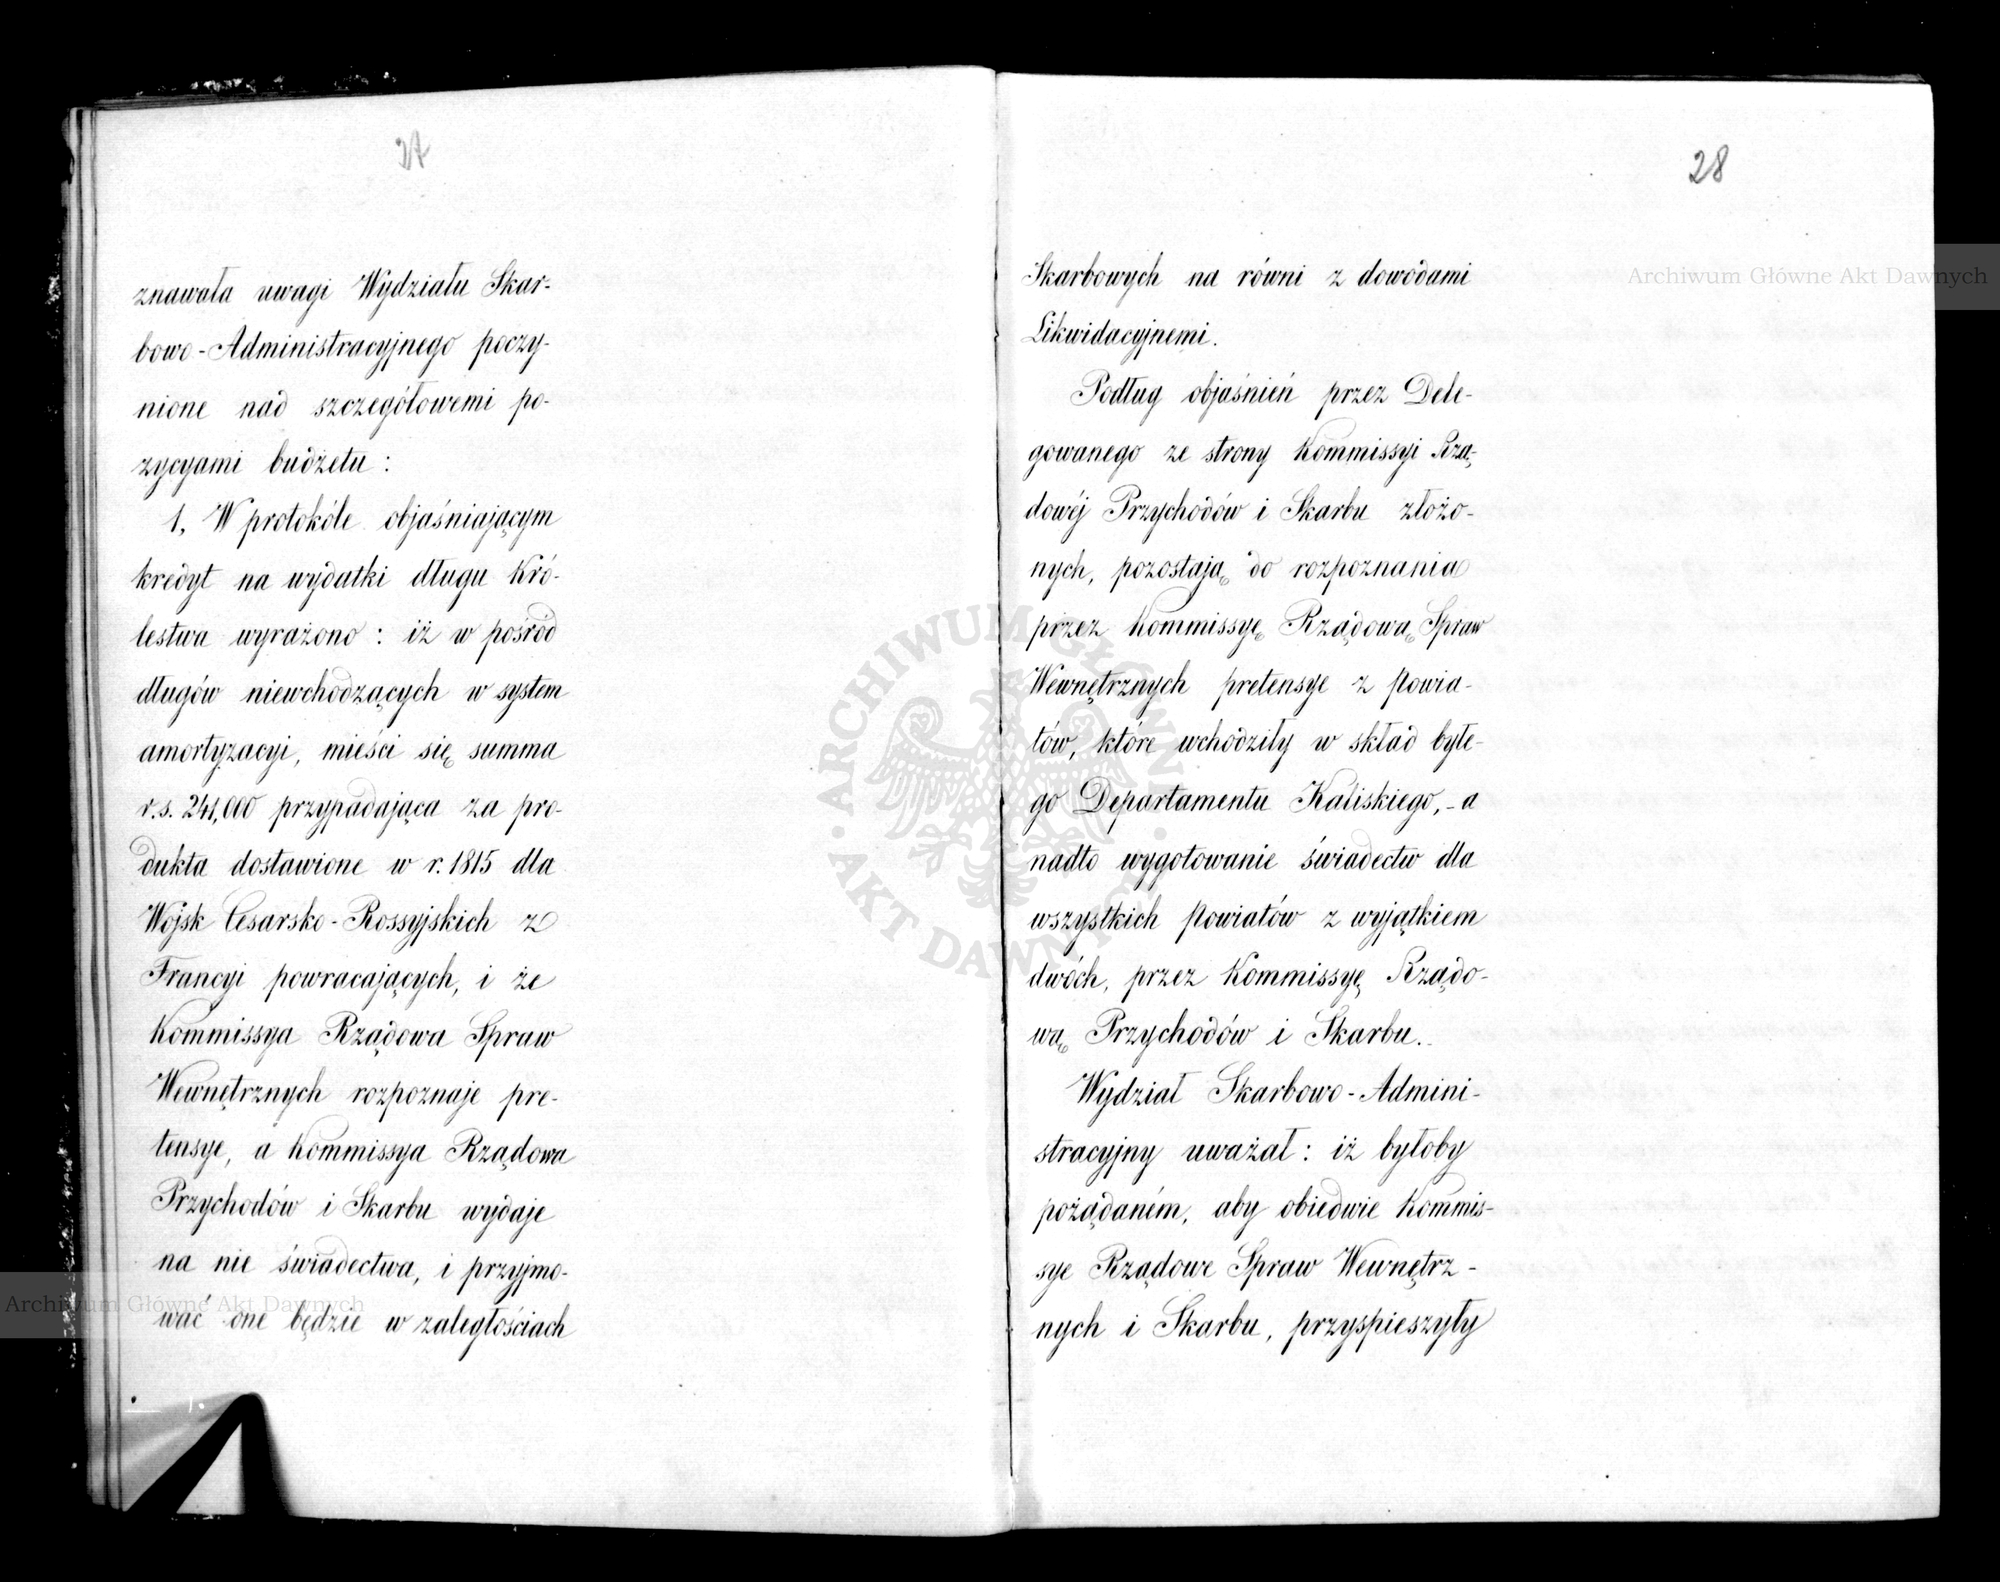 27
znawała uwagi Wydziału Skar-
bowo-Administracyjnego poczy-
nione nad szczegółowemi po-
zycyami budżetu:
1, W protokóle objaśniającym
kredyt na wydatki długu Kró-
lestwa wyrażono: iż w pośród
długów niewchodzących w system
amortyzacyi, mieści się summa
r.s. 241,000 przypadająca za pro-
dukta dostawione w r. 1815 dla
Wojsk Cesarsko-Rossyjskich z
Francyi powracających, i że
Kommissya Rządowa Spraw
Wewnętrznych rozpoznaje pre-
tensye, a Kommissya Rządowa
Przychodów i Skarbu wydaje
na nie świadectwa, i przyjmo-
wać one będzie w zaległościach
28
Skarbowych na równi z dowodami
Likwidacyjnemi.
Podług objaśnień przez Dele-
gowanego ze strony Kommissyi Rzą-
dowéj Przychodów i Skarbu złożo-
nych, pozostają do rozpoznania
przez Kommissyę Rządową Spraw
Wewnętrznych pretensye z Powia-
tów, które wchodziły w skład byłe-
go Departamentu Kaliskiego,-a
nadto wygotowanie świadectw dla
wszystkich Powiatów z wyjątkiem
dwóch, przez Kommissyę Rządo-
wą Przychodów i Skarbu.
Wydział Skarbowo-Admini-
stracyjny uważał: iż byłoby
pożądaném, aby obiedwie Kommis-
sye Rządowe Spraw Wewnętrz-
nych i Skarbu, przyspieszyły
Archiwum Główne Akt Dawnych
Archiwum Główne Akt Dawnych
ARCHIWUM GŁÓWNE AKT DAWNYCH